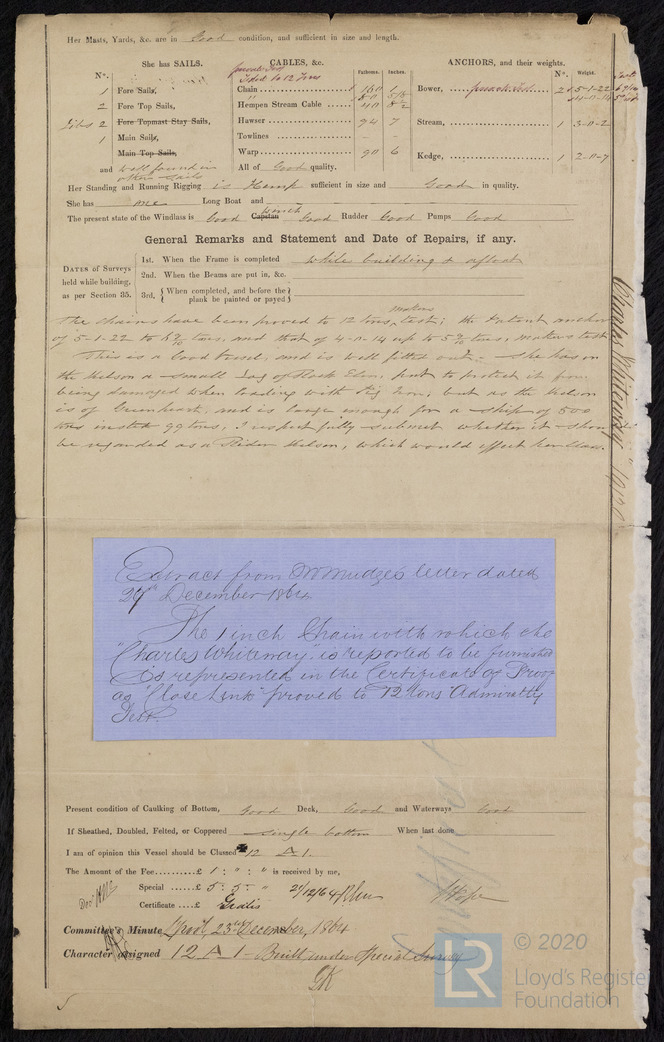 Her Masts, Yards, &c. are in Good condition, and sufficient in size and length.
She has SAILS.
CABLES, &c.
ANCHORS, and their weights.
N°.
Fathoms. Inches.
N°. Weight.
1 Fore Sails,
2 Fore Top Sails,
Jibs 2 Fore Topmast Stay Sails,
1 Main Sails,
Main Top Sails,
and well found in
other Sails
Tested to 12 Tons
Chain
Hempen Stream Cable 8½
Hawser 94 7
Towlines - -
Warp 90 6
All of Good quality.
Bower, 2 5-1-22
4-0-14
Stream, 1 3-0-2
Kedge, 1 2-0-7
Her Standing and Running Rigging is Hemp sufficient in size and Good in quality.
She has one Long Boat and
The present state of the Windlass is Good Capstan Winch Good Rudder Good Pumps Good
General Remarks and Statement and Date of Repairs, if any.
DATES of Surveys
held while building,
as per Section 35.
1st. When the Frame is completed while building & afloat
2nd. When the Beams are put in, &c.
3rd. When completed, and before the
plank be painted or payed
makers
The chains have been proved to 12 tons, test; the Patent anchor
of 5-1-22 to 6 9/10 tons, and that of 4-0-14 up to 5 9/10 tons, makers test
This is a Good Vessel, and is well fitted out. She has on
the Kelson a small Log of Rock Elm, put to protect it from
being damaged when loading with Pig Iron, but as the Kelson
is of Greenheart, and is large enough for a ship of 500
tons instead 99 tons, I respectfully submit whether it should
be regarded as a Rider Kelson, which would effect her Class.
Charles Whiteway
Extract from Mr Mudge's letter dated
29th December 1864
The 1 inch Chain with which the
"Charles Whiteway" is reported to be furnished
is represented in the Certificate of Proof
as "Close Link" proved to 12 Tons Admiralty
Test.
Present condition of Caulking of Bottom, Good Deck, Good and Waterways Good
If Sheathed, Doubled, Felted, or Coppered single bottom When last done
I am of opinion this Vessel should be Classed 12 A 1.
The Amount of the Fee £ 1 : " : " is received by me,
Special £ 5 : 5 : " 21/12/64
Certificate £ Gratis
Committee's Minute Lpool, 23rd December, 1864
Character assigned 12 A 1 - Built under Special Survey
GK
LR
© 2020
Lloyd's Register
Foundation